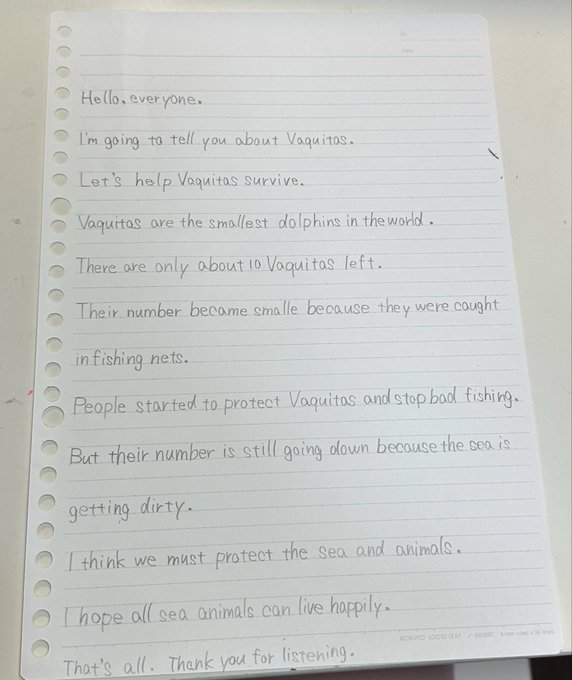 Hello, everyone.
I'm going to tell you about Vaquitas.
Let's help Vaquitas survive.
Vaquitas are the smallest dolphins in the world.
There are only about 10 Vaquitas left.
Their number became smalle because they were caught
in fishing nets.
People started to protect Vaquitas and stop bad fishing.
But their number is still going down because the sea is
getting dirty.
I think we must protect the sea and animals.
I hope all sea animals can live happily.
KOKUYO LOOSE-LEAF
That's all. Thank you for listening.